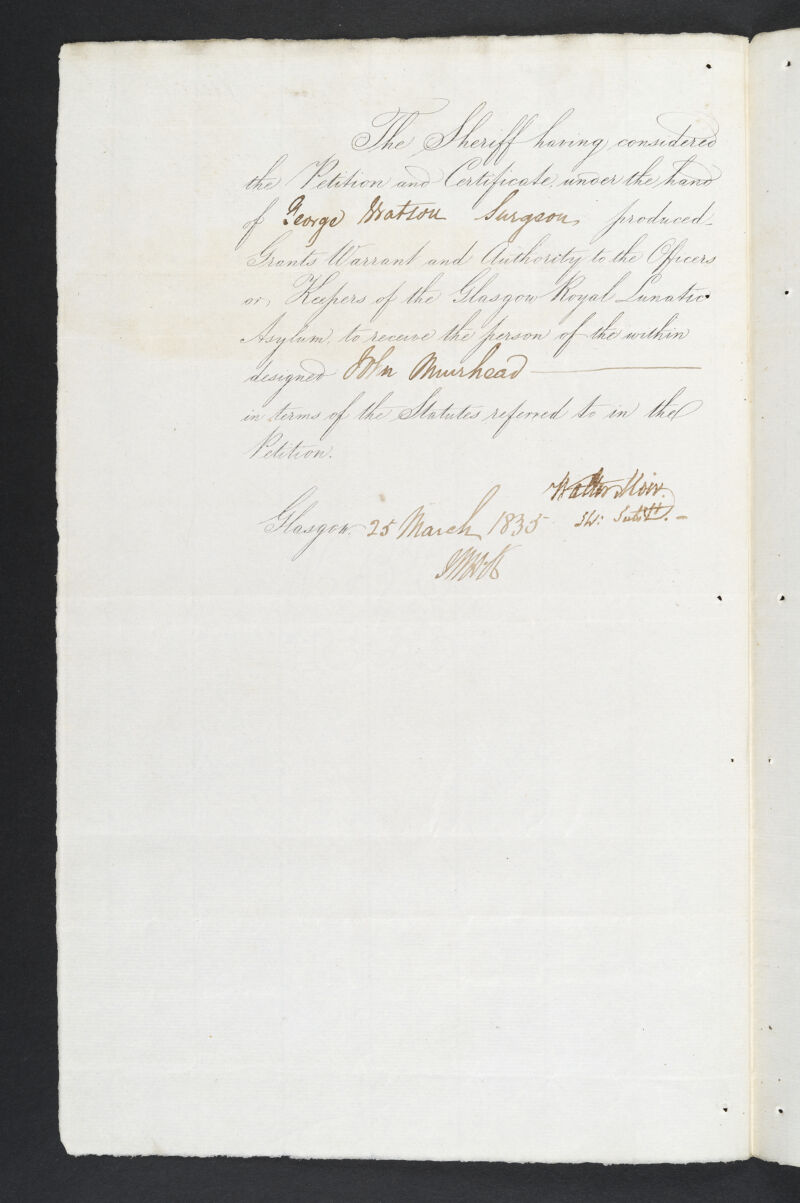 The Sheriff having considered
the Petition and Certificate, under the hand
of George Watson Surgeon, produced
Grants Warrant and Authority to the Officers
or Keepers of the Glasgow Royal Lunatic
Asylum, to receive the person of the within
designed John Muirhead
in terms of the Statutes referred to in the
Petition.
Walter Moir.
Sh: Subst.
Glasgow, 25 March 1835